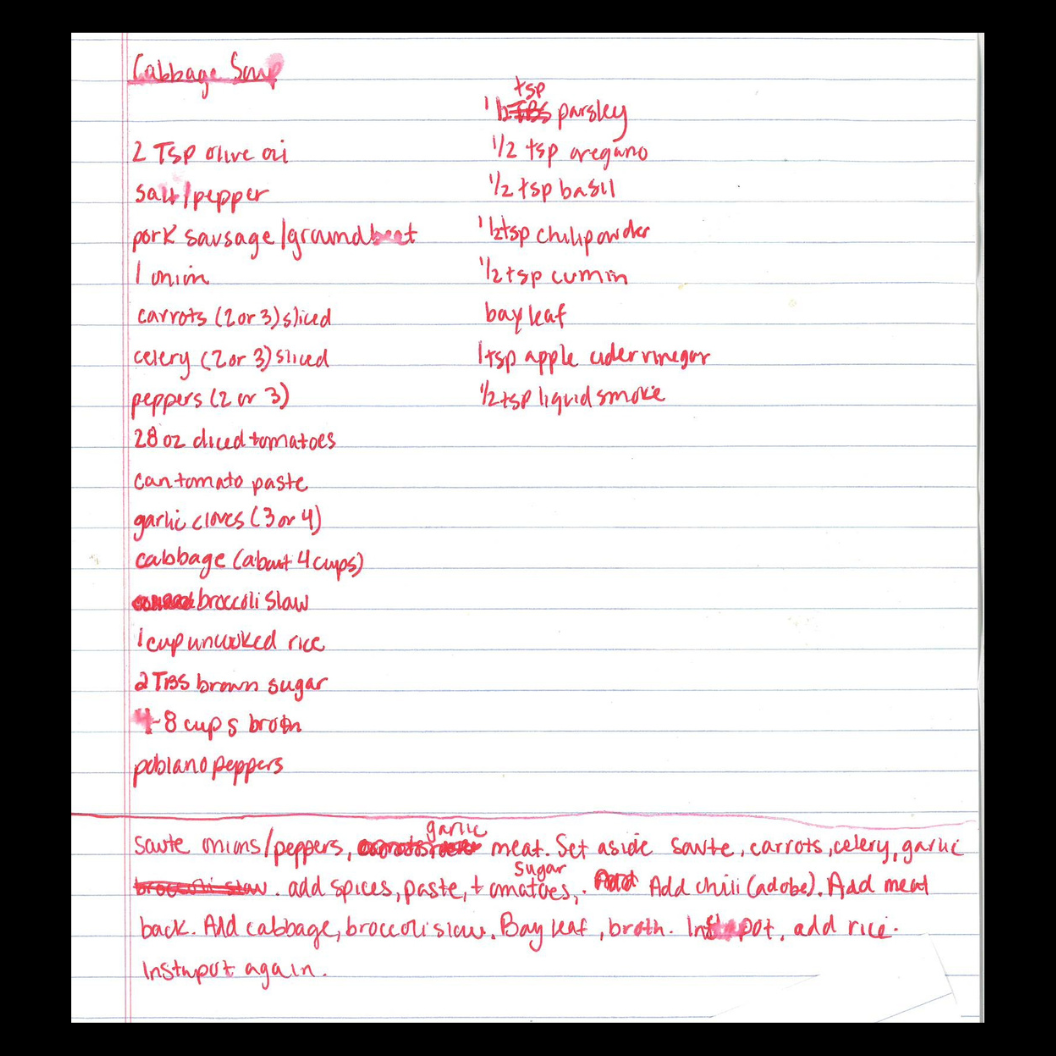 Cabbage Soup
2 Tsp olive oi
salt/pepper
pork sausage/ground beat
1 onion
carrots (2 or 3) sliced
celery (2 or 3) sliced
peppers (2 or 3)
28 oz diced tomatoes
can tomato paste
garlic cloves (3 or 4)
cabbage (about 4 cups)
broccoli slaw
1 cup uncooked rice
2 TBS brown sugar
4-8 cups broth
poblano peppers
tsp
1 parsley
1/2 tsp oregano
1/2 tsp basil
1 1/2 tsp chili powder
1/2 tsp cumin
bay leaf
1 tsp apple cider vinegar
1/2 tsp liquid smoke
garlic
saute onions/peppers, meat. Set aside saute, carrots, celery, garlic
sugar
broccoli slaw. add spices, paste, tomatoes,. Add Add chili (adobe). Add meat
back. Add cabbage, broccoli slaw. Bay leaf, broth. Inst pot, add rice.
Instupot again.